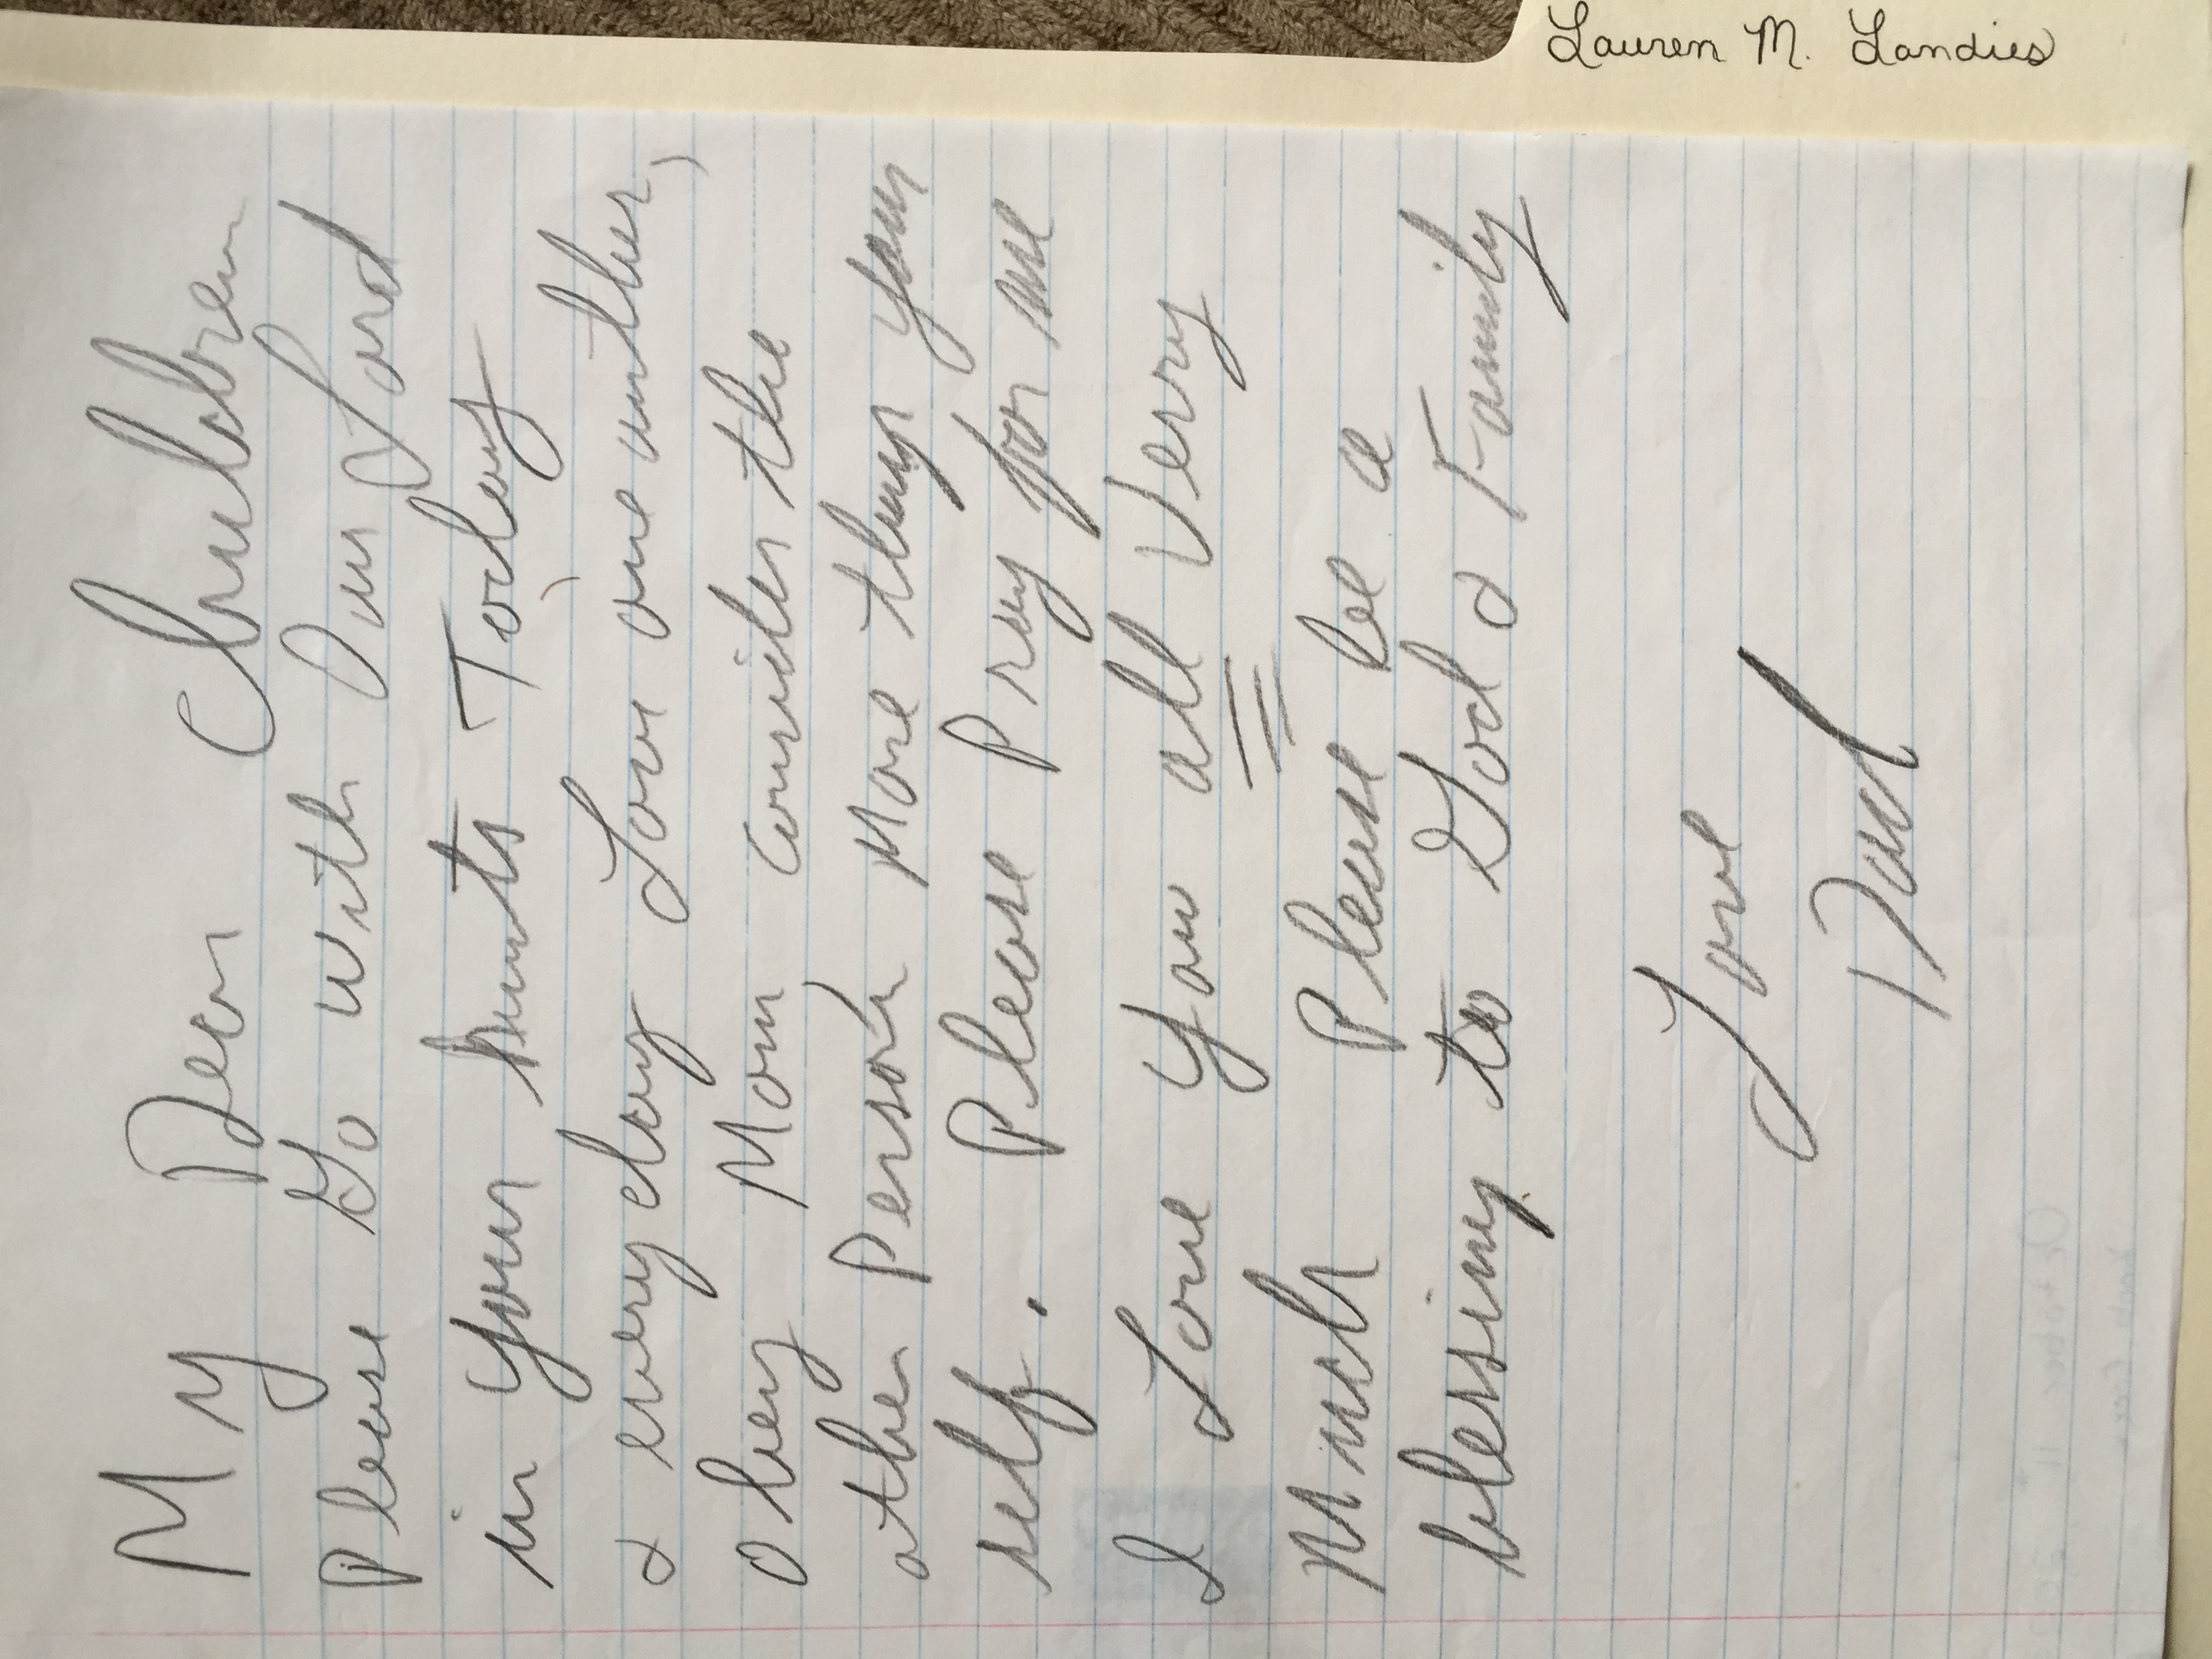 My Dear Children
Please Go with Our Lord
in your hearts Today
& everyday Love one anther,
Obey Mom, consider the
other Person More than your
self. Please Pray for me
I Love You all Verry
Much Please be a
blessing to God & Family
Love
Dad
Lauren M. Landies
October 11